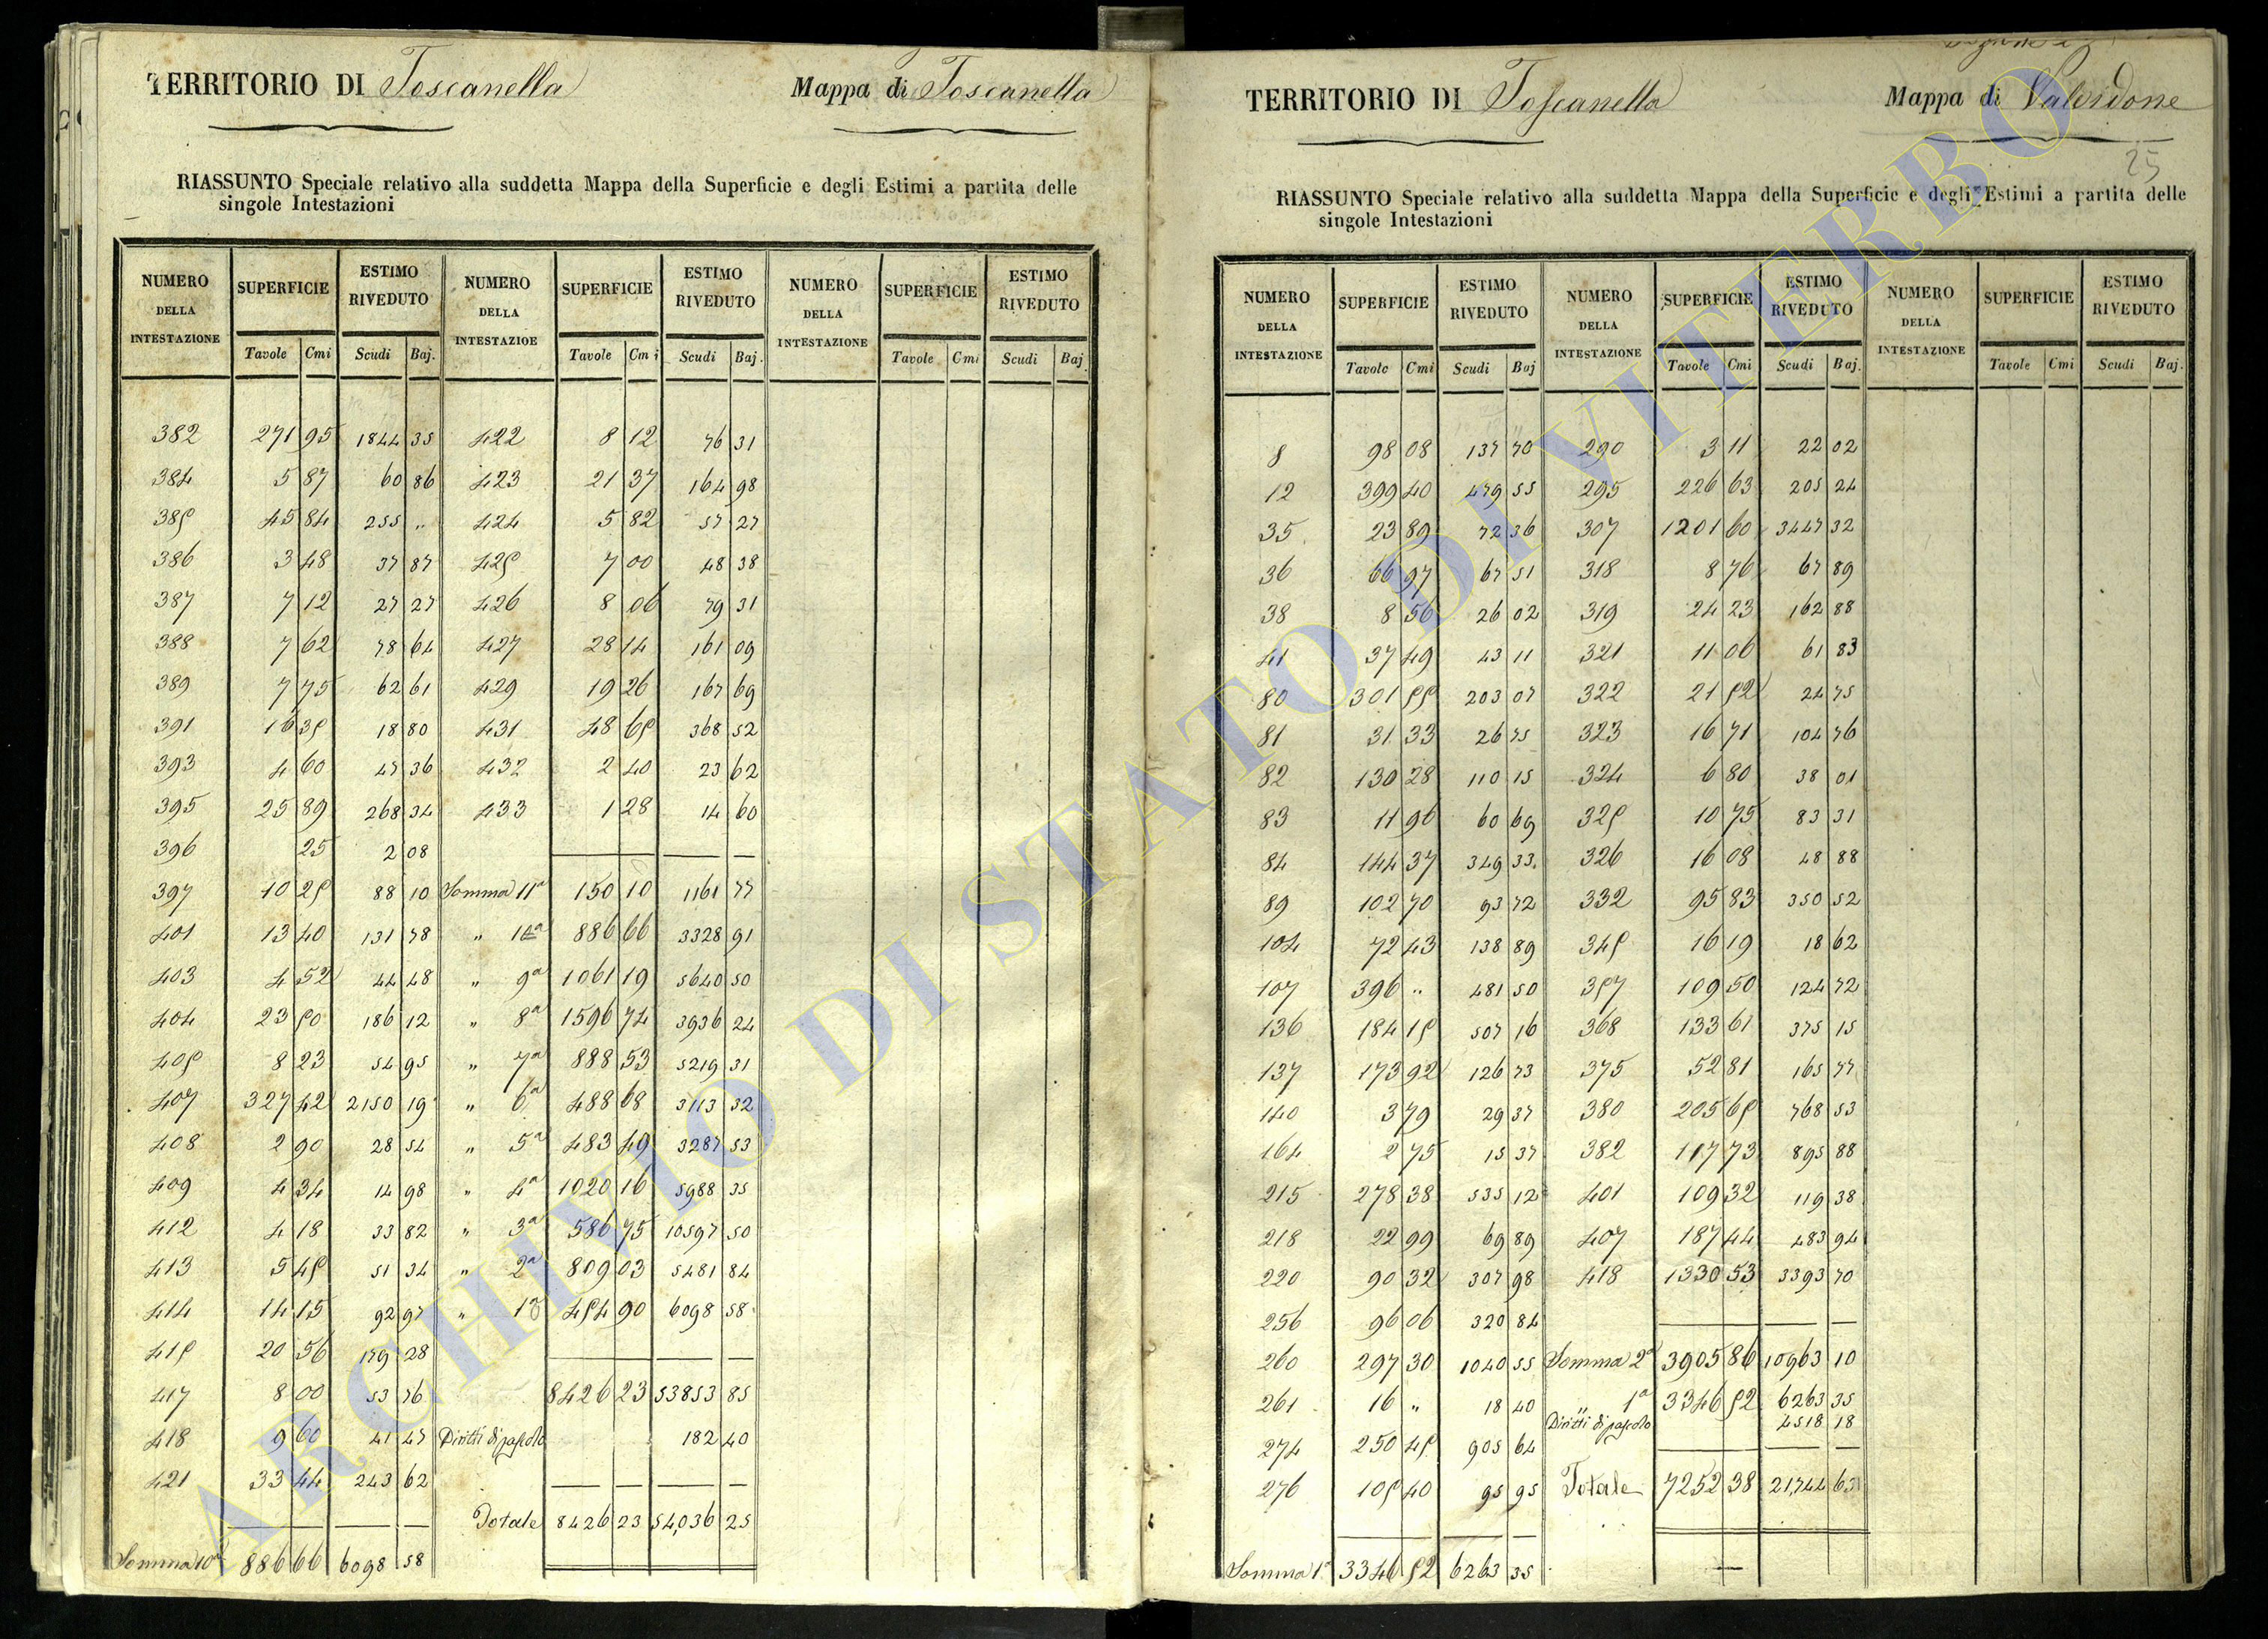 TERRITORIO DI Toscanella Mappa di Toscanella
RIASSUNTO Speciale relativo alla suddetta Mappa della Superficie e degli Estimi a partita delle
singole Intestazioni
NUMERO DELLA INTESTAZIONE SUPERFICIE ESTIMO RIVEDUTO NUMERO DELLA INTESTAZIOE SUPERFICIE ESTIMO RIVEDUTO NUMERO DELLA INTESTAZIONE SUPERFICIE ESTIMO RIVEDUTO
Tavole Cmi Scudi Baj. Tavole Cmi Scudi Baj. Tavole Cmi Scudi Baj
382 271 95 1844 35 422 8 12 76 31
384 5 87 60 86 423 21 37 164 98
385 45 84 255 .. 424 5 82 57 27
386 3 48 37 87 425 7 00 48 38
387 7 12 27 27 426 8 06 79 31
388 7 62 78 64 427 28 14 161 09
389 7 75 62 61 429 19 26 167 69
391 16 35 18 80 431 48 65 368 52
393 4 60 47 36 432 2 40 23 62
395 25 89 268 34 433 1 28 14 60
396 25 2 08
397 10 25 88 10 Somma 11a 150 10 1161 77
401 13 40 131 78 " 886 66 3328 91
403 4 52 44 48 " 9a 1061 19 5640 50
404 23 50 186 12 " 8a 1596 74 3936 24
405 8 23 54 95 " 7a 888 53 5219 31
407 327 42 2150 19 " 6a 488 68 3113 32
408 2 90 28 54 " 5a 483 49 3287 53
409 4 34 14 98 " 4a 1020 16 5988 35
412 4 18 33 82 " 3a 586 75 10597 50
413 5 45 51 34 " 2a 809 03 5481 84
414 14 15 92 97 " 454 90 6098 58
415 20 56 179 28
417 8 00 53 76 8426 23 53853 85
418 9 60 41 47 Diritti di pascolo 182 40
421 33 44 243 62
Totale 8426 23 54,036 25
Somma 10a 886 66 6098 58
TERRITORIO DI Toscanella Mappa di Valvidone
25
RIASSUNTO Speciale relativo alla suddetta Mappa della Superficie e degli Estimi a partita delle
singole Intestazioni
NUMERO DELLA INTESTAZIONE SUPERFICIE ESTIMO RIVEDUTO NUMERO DELLA INTESTAZIONE SUPERFICIE ESTIMO RIVEDUTO NUMERO DELLA INTESTAZIONE SUPERFICIE ESTIMO RIVEDUTO
Tavole Cmi Scudi Baj Tavole Cmi Scudi Baj. Tavole Cmi Scudi Baj.
8 98 08 137 70 290 3 11 22 02
12 399 40 479 55 295 226 63 205 24
35 23 89 72 36 307 1201 60 3447 32
36 66 97 67 51 318 8 76 67 89
38 8 56 26 02 319 24 23 162 88
41 37 49 43 11 321 11 06 61 83
80 301 55 203 07 322 21 52 24 75
81 31 33 26 75 323 16 71 104 76
82 130 28 110 15 324 6 80 38 01
83 11 96 60 69 325 10 75 83 31
84 144 37 349 33 326 16 08 48 88
89 102 70 93 72 332 95 83 350 52
104 72 43 138 89 345 16 19 18 62
107 396 .. 481 50 357 109 50 124 72
136 184 15 507 16 368 133 61 375 15
137 173 92 126 73 375 52 81 165 77
140 3 79 29 37 380 205 65 768 53
164 2 75 15 37 382 117 73 895 88
215 278 38 535 12 401 109 32 119 38
218 22 99 69 89 407 187 44 483 94
220 90 32 307 98 418 1330 53 3393 70
256 96 06 320 84
260 297 30 1040 55 Somma 2a 3905 86 10963 10
261 16 " 18 40 " 1a 3346 52 6263 35
Diritti di pascolo 4518 18
274 250 45 905 64
276 105 40 95 95 Totale 7252 38 21,744 63
Somma 1a 3346 52 6263 35
ARCHIVIO DI STATO DI VITERBO